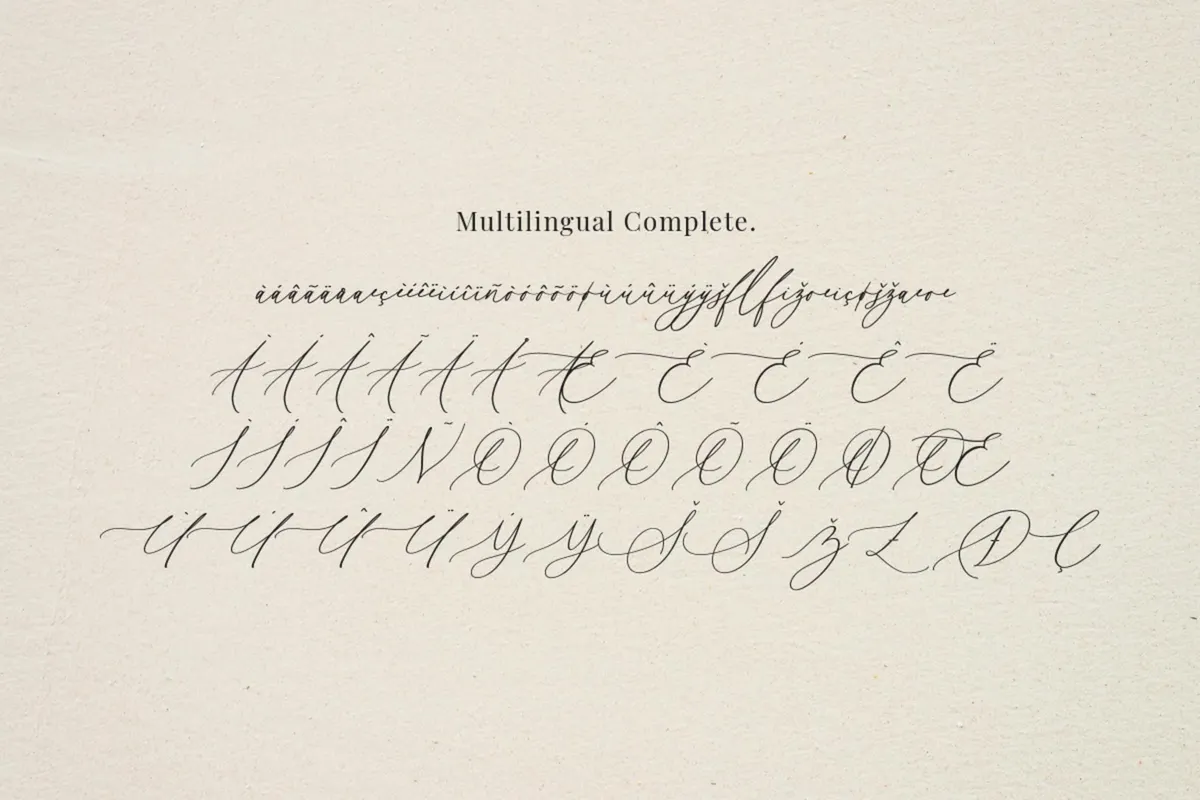 Multilingual Complete.
àáâãäåæçèéêëìíîïñòóôõöøùúûüýÿšſlſižœ
ÀÁÂÃÄÅÆÈÉÊË
ÌÍÎÏÑÒÓÔÕÖØŒ
ÙÚÛÜÝŸŠŠŽŁÐÇ